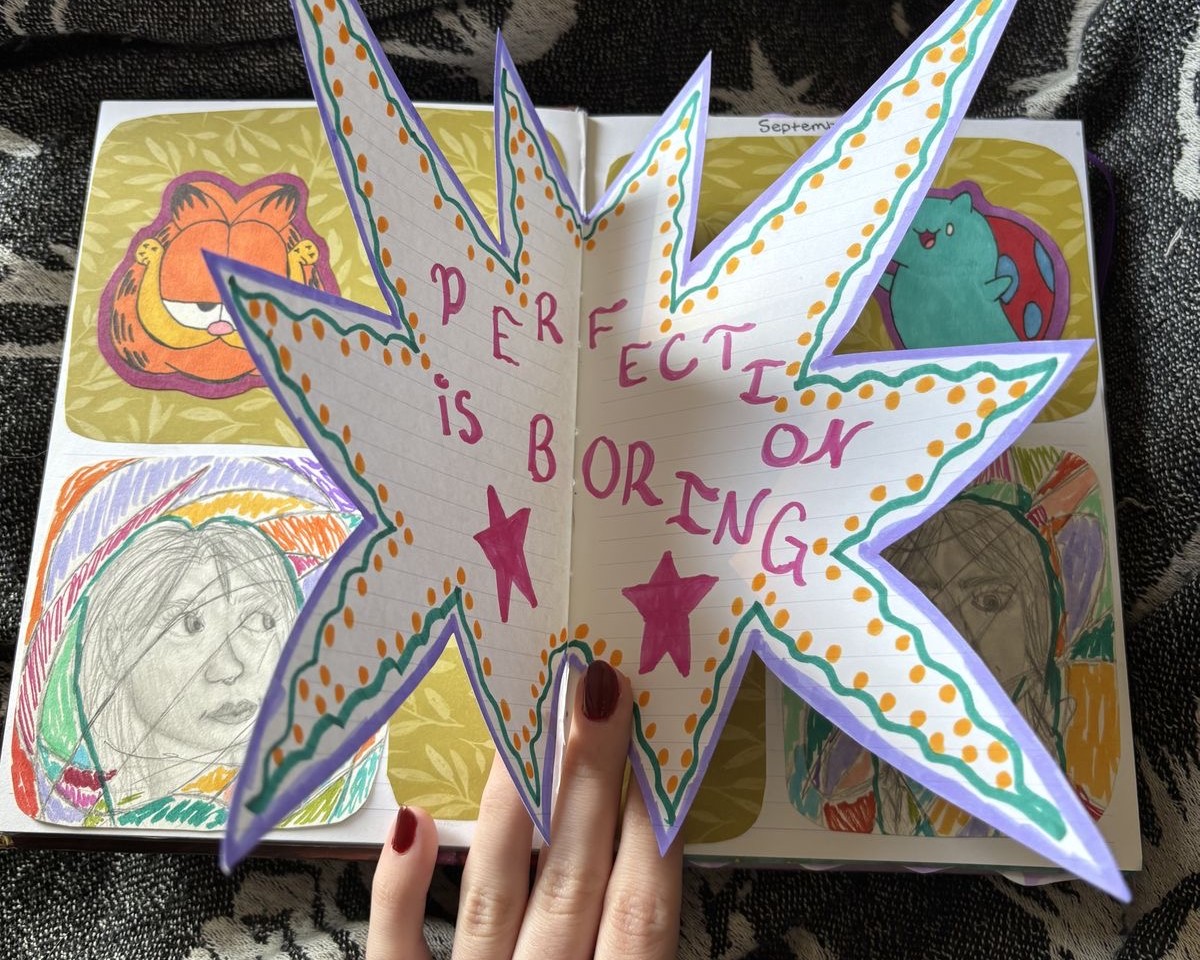 Septem
PERFECTION
is BORING